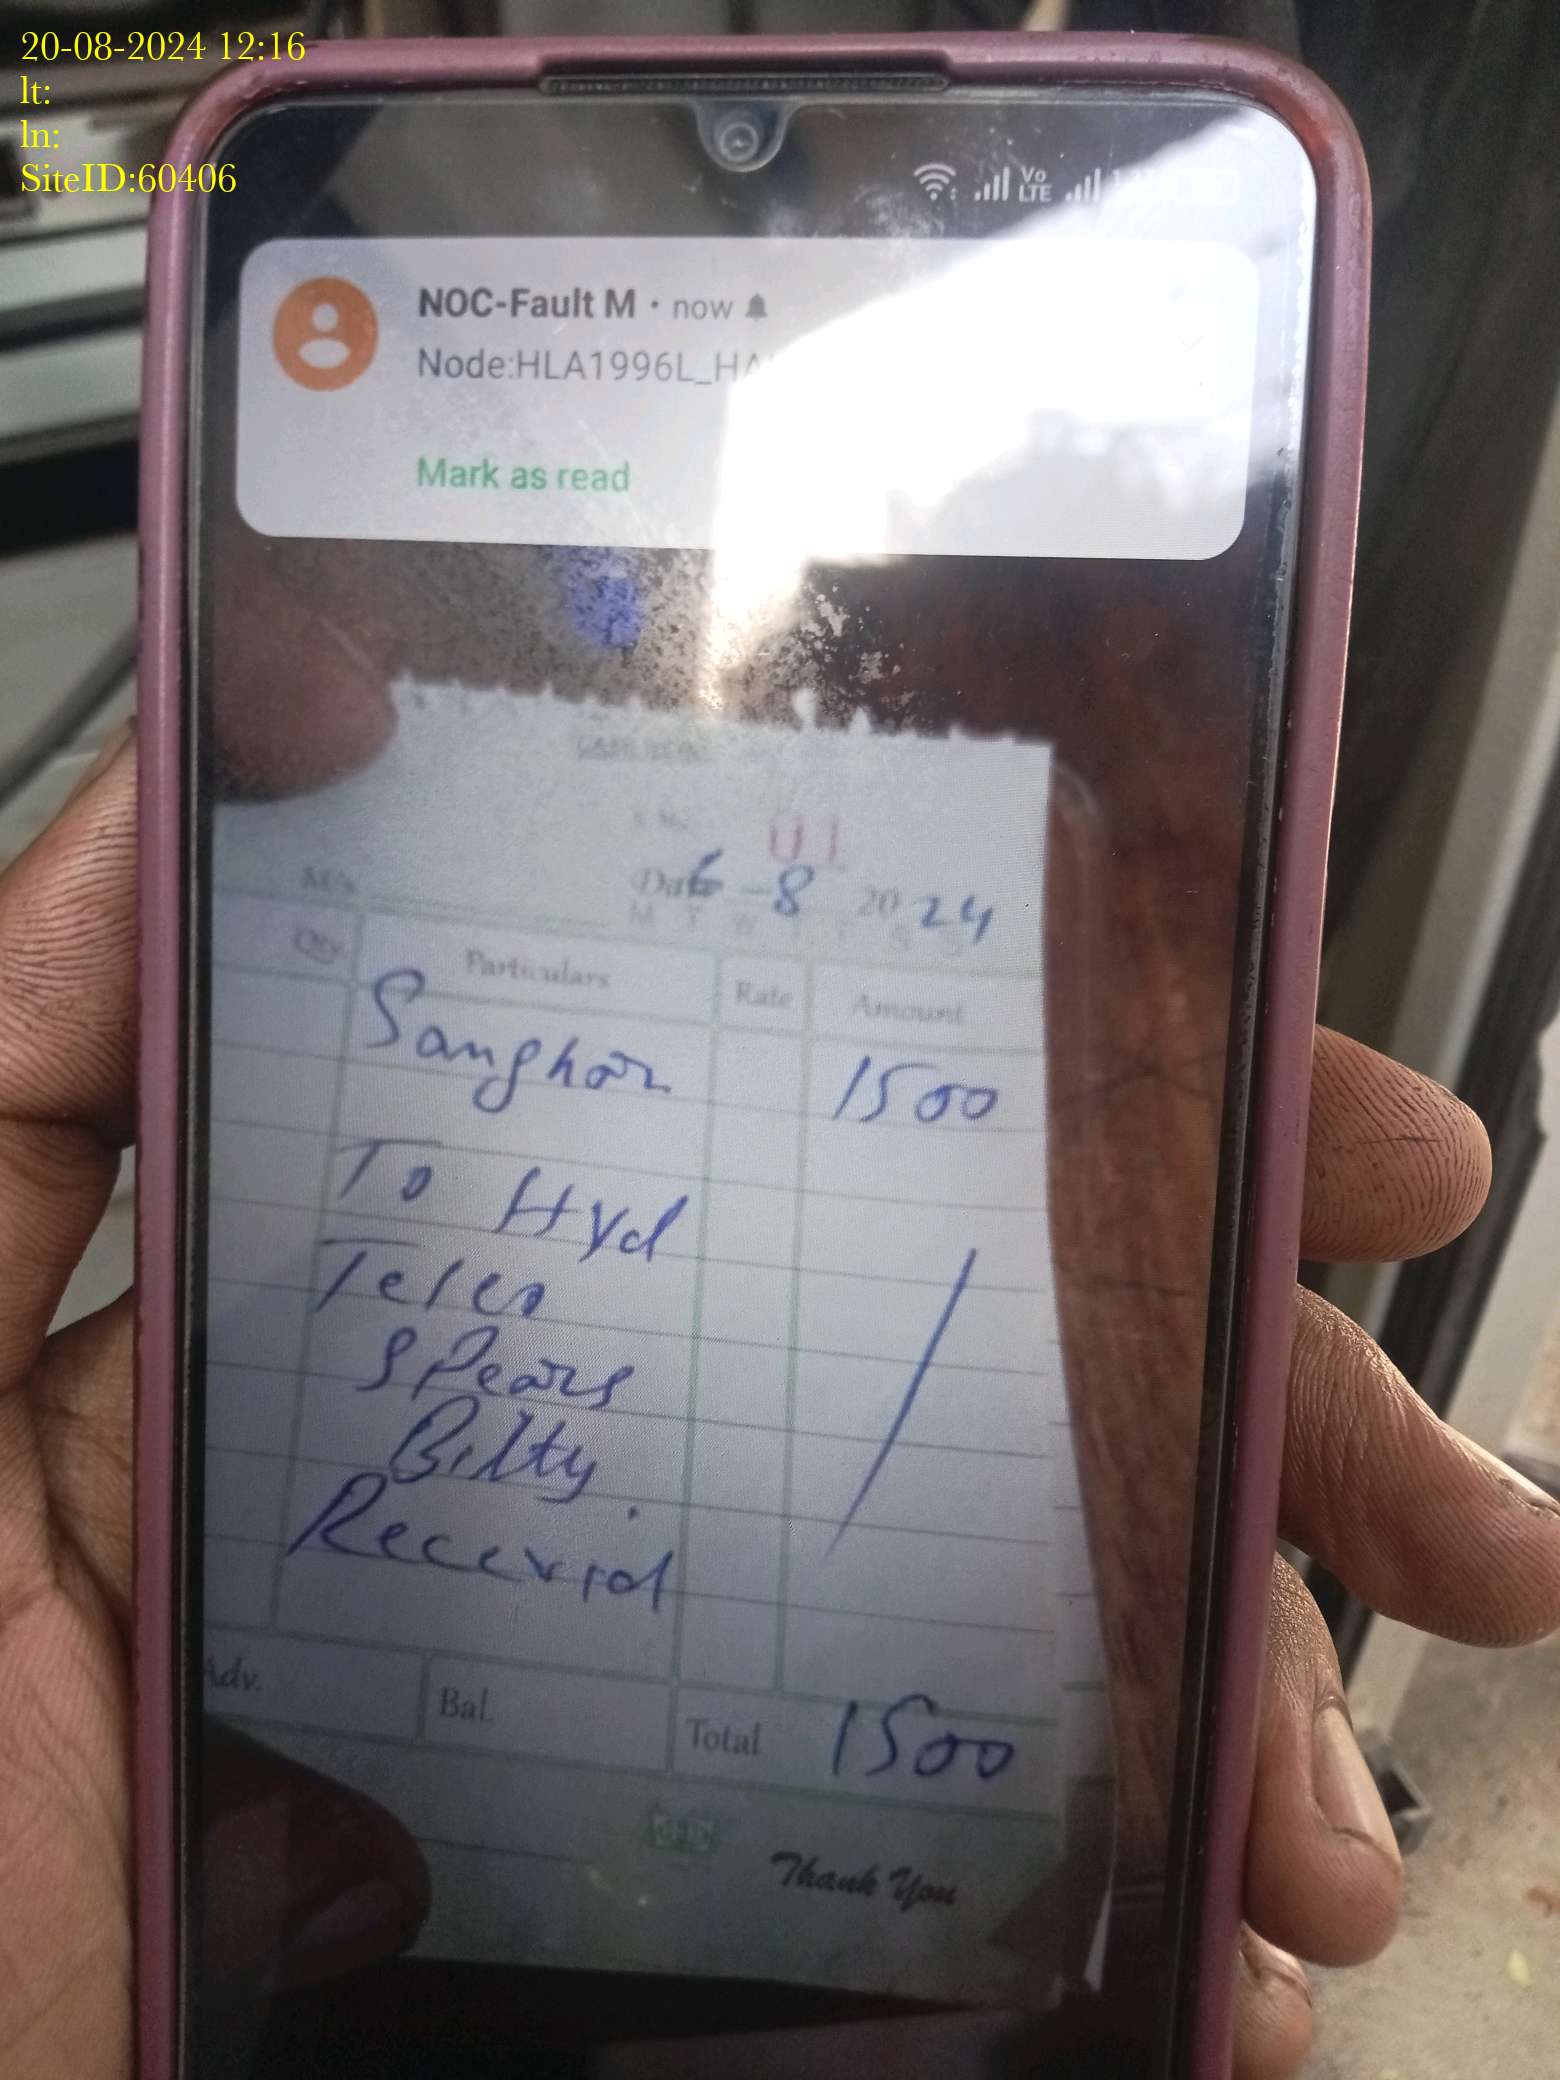 20-08-2024 12:16
lt:
ln:
SiteID:60406
Vo
LTE
NOC-Fault M • now
Node:HLA1996L_HA
Mark as read
01
Date 6-8 2024
M/s
M T W T F S S
Qty. Particulars Rate Amount
Sanghar 1500
To Hyd
Telco
Spears
Bilty.
Recevid
Adv. Bal. Total 1500
Thank You